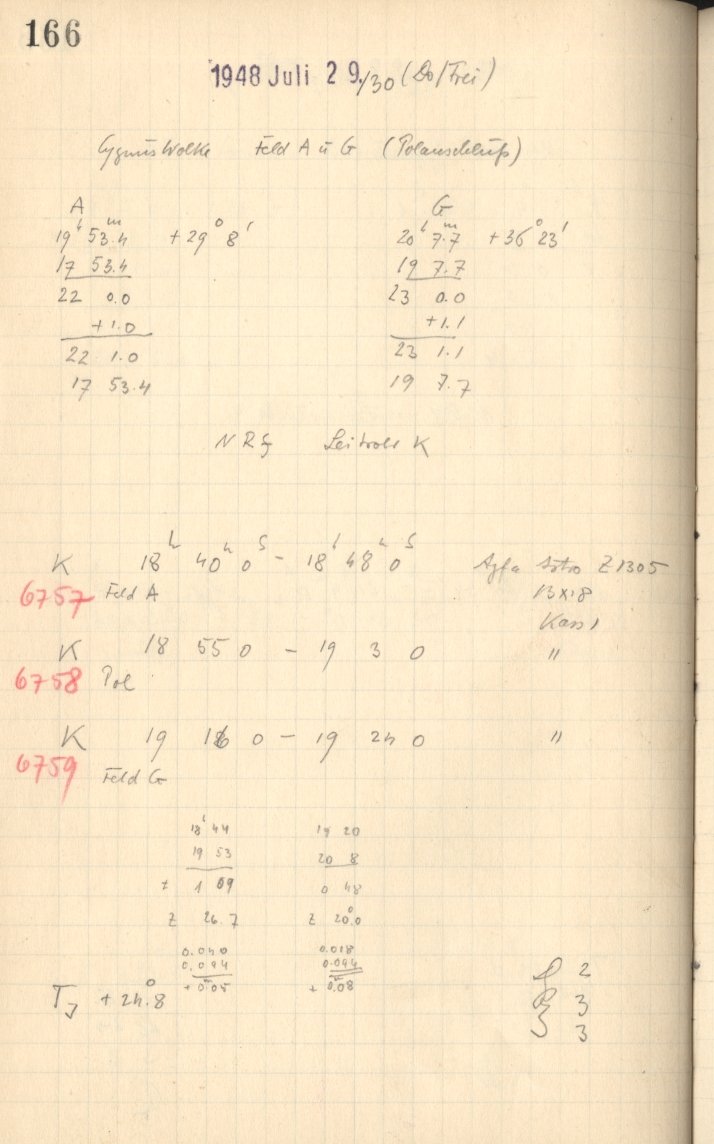 166
1948 Juli 29./30 (Do/Frei)
Cygnus Wolke Feld A u G (Polanschluß)
A G
19h 53.4m +29° 8' 20h 7.7m +36° 23'
17 53.4 19 7.7
22 0.0 23 0.0
+1.0 +1.1
22 1.0 23 1.1
17 53.4 19 7.7
Leitrohr K
K 18h 40m 0s – 18h 48m 0s Agfa Astro Z1305
6757 Feld A 13x18
Kass 1
K 18 55 0 – 19 3 0 "
6758 Pol
K 19 16 0 – 19 24 0 "
6759 Feld G
18h 44 19 20
19 53 20 8
t 1 09 0 48
z 26.7 z 20°.0
0.040 0.018
0.094 0.094
+0.05 +0.08
T +24°.8
2
3
3